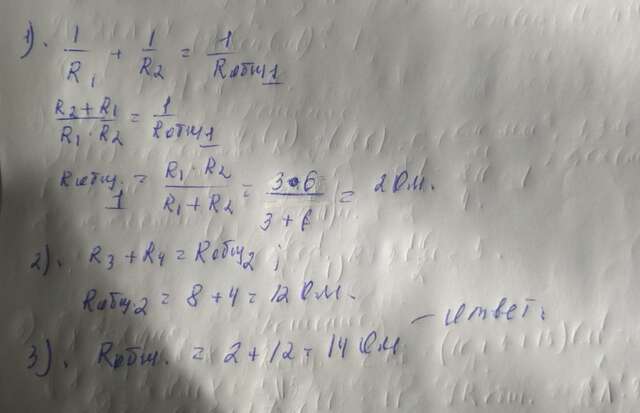 1). 1/R1 + 1/R2 = 1/Rобщ1
R2+R1/R1·R2 = 1/Rобщ1
Rобщ.1 = R1·R2/R1+R2 = 3·6/3+6 = 2 Ом.
2). R3+R4 = Rобщ2;
Rобщ.2 = 8+4 = 12 Ом.
3). Rобщ. = 2+12 = 14 Ом – ответ.